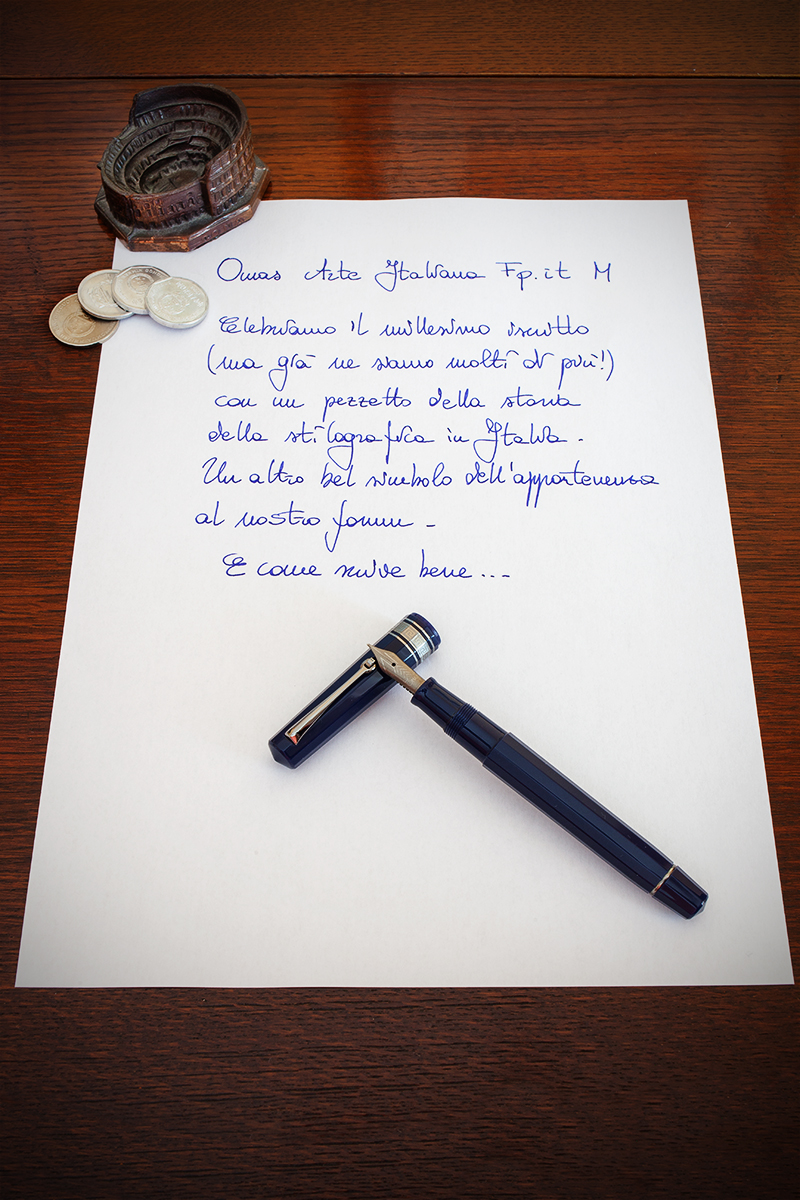 Omas Arte Italiana Fp.it M
Celebriamo il millesimo iscritto
(ma già ne siamo molti di più!)
con un pezzetto della storia
della stilografica in Italia.
Un altro bel simbolo dell'appartenenza
al nostro forum.
E come scrive bene...